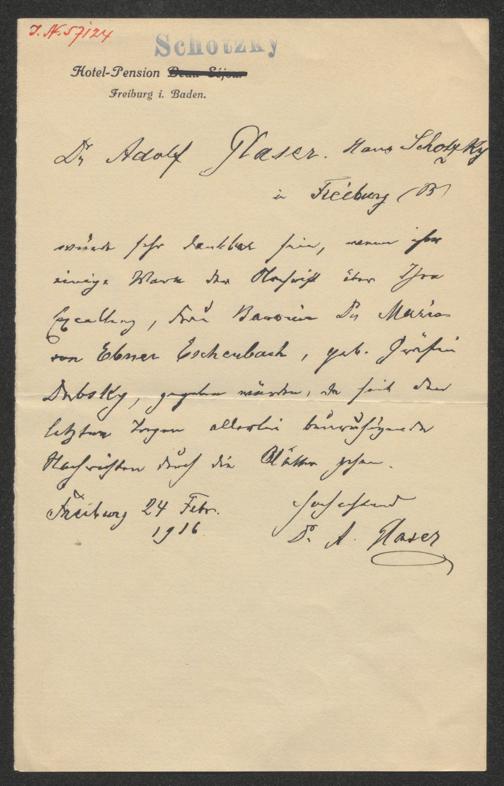 J. N. 57124
Schotzky
Hotel-Pension Beau-Séjour
Freiburg i. Baden.
Dr Adolf Glaser. Haus Schotzky
in Freiburg (B)
würde sehr dankbar sein, wenn ihm
einige Worte der Nachricht über Ihre
Excellenz, Frau Baronin Dr Marie
von Ebner Eschenbach, geb. Gräfin
Dubsky, gegeben würden, da seit den
letzten Tagen allerlei beunruhigende
Nachrichten durch die Blätter gehen.
Freiburg 24 Febr.
1916
Hochachtend
Dr. A. Glaser